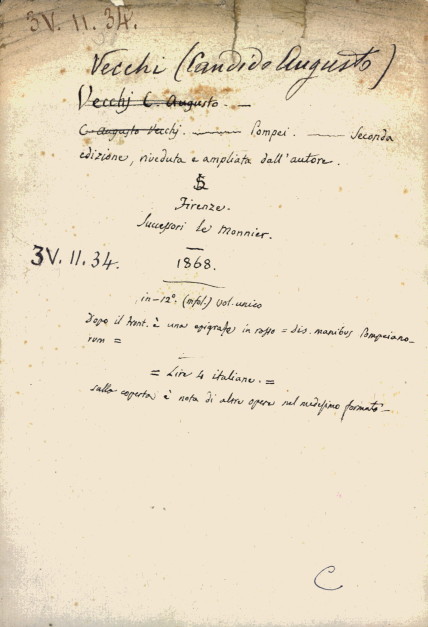 3V. 11. 34.
Vecchi (Candido Augusto)
Vecchj C. Augusto. —
C. Augusto Vecchj. —— Pompei. —— Seconda
edizione, riveduta e ampliata dall'autore.
Firenze.
Successori Le Monnier.
3V. 11. 34.
1868.
in-12°. (mfol.) vol. unico
Dopo il front. è una epigrafe in rosso = dis. manibus Pompeiano-
rum =
= Lire 4 italiane. =
sulla coperta è nota di altre opere nel medesimo formato —
C